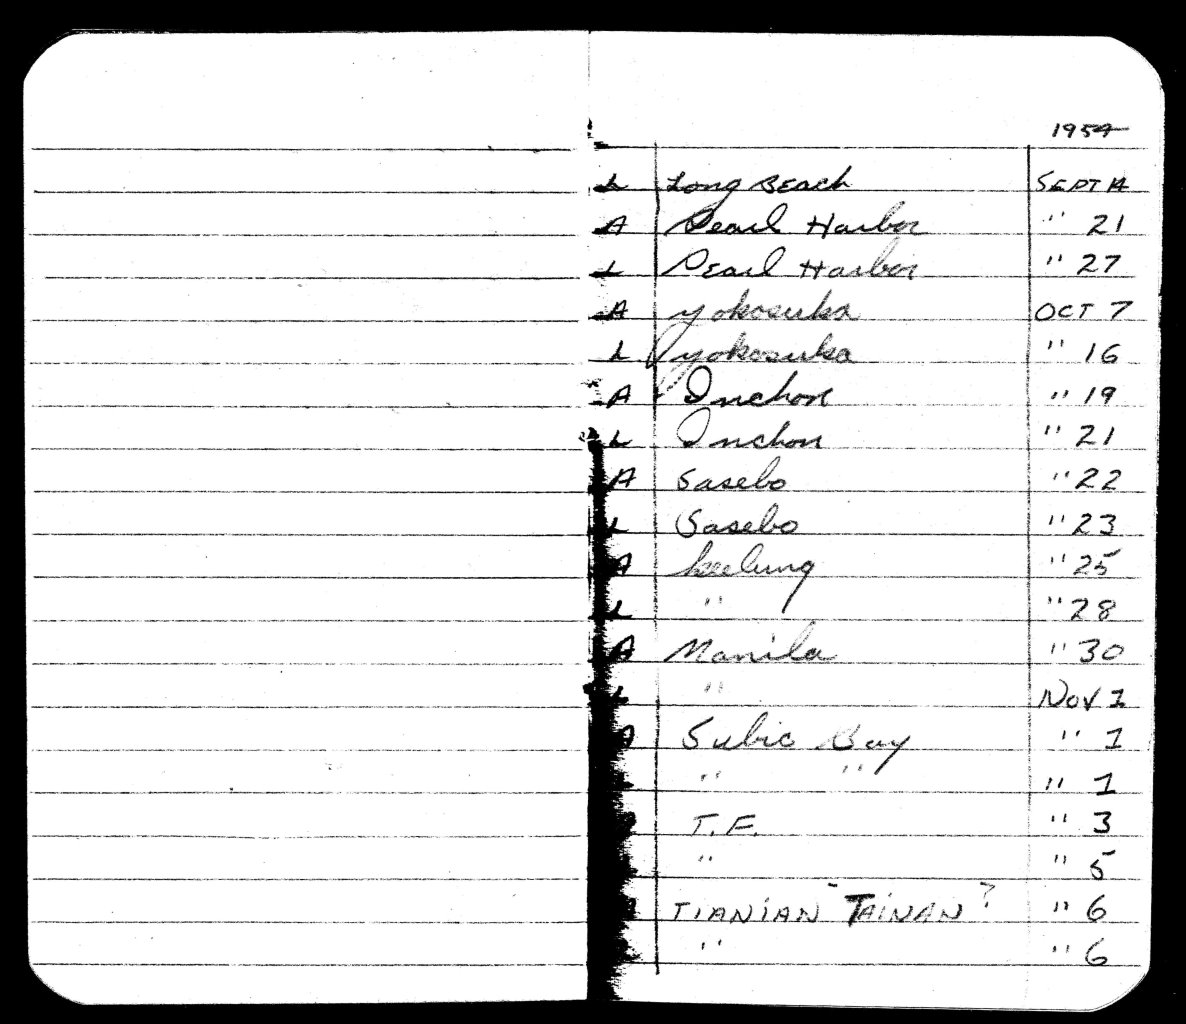 1954
L Long Beach SEPT 14
A Pearl Harbor " 21
L Pearl Harbor " 27
A yokosuka OCT 7
L yokosuka " 16
A Inchon " 19
L Inchon " 21
A Sasebo " 22
L Sasebo " 23
A keelung " 25
L " " 28
A Manila " 30
L " Nov 1
A Subic Bay " 1
" " " 1
T.F. " 3
" " 5
TIANIAN - TAINAN ? " 6
" " 6